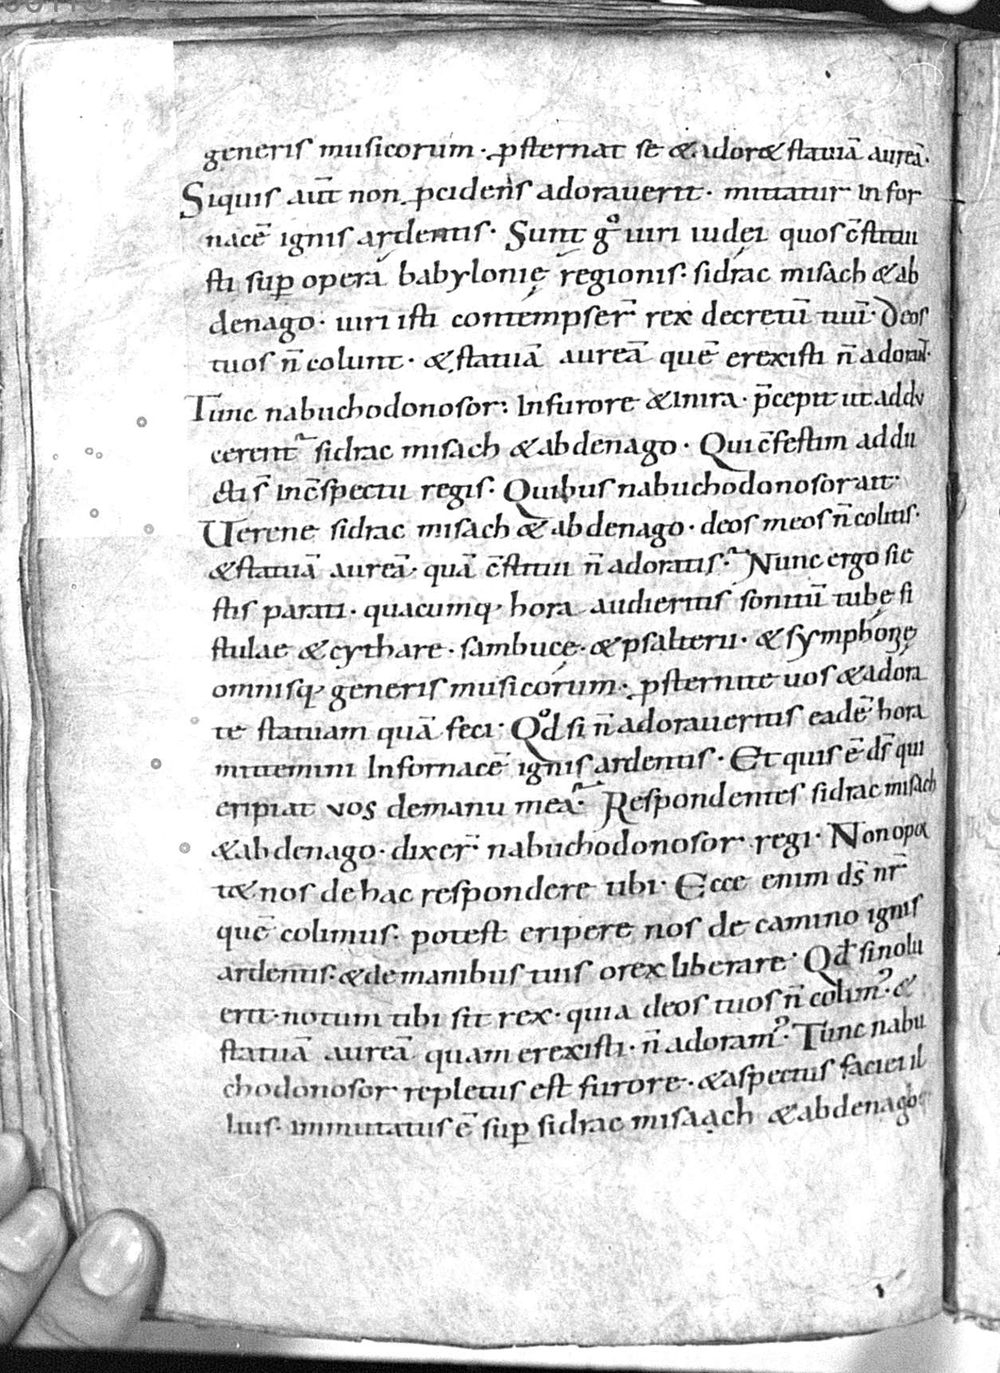 generis musicorum· ꝓsternat se & ador& statuā aureā·
Siquis aūt non ꝓcidens adorauerit· mittatur in for
nacē ignis ardentis· Sunt gͦ uiri iudei quos c̄stitui
sti sup̱ opera babylonię regionis· sidrac misach & ab
denago· uiri isti contempser̄ rex decretū tuū· Deos
tuos n̄ colunt· & statuā aureā quē erexisti n̄ adorant·
Tunc nabuchodonosor: In furore & in ira· p̄cepit ut addu
cerent̃ sidrac misach & abdenago· Qui c̄festim addu
cti s̄ in c̄spectu regis· Quibus nabuchodonosor ait·
Uerene sidrac misach & abdenago· deos meos n̄ colitis·
& statuā aureā· quā c̄stitui n̄ adoratis· Nunc ergo si e
stis parati· quacumq; hora audieritis sonitū tubę fi
stulae & cythare· sambucę· & psalterii· & symphonię
omnisq; generis musicorum· ꝓsternite uos & adora
te statuam quā feci· Qͦd si n̄ adoraueritis eadē hora
mittemini In fornacē ignis ardentis· Et quis ē d̄s qui
eripiat vos de manu mea· Respondentes sidrac misach
& abdenago· dixer̄ nabuchodonosor regi· Non opor
t& nos de hac respondere tibi· Ecce enim d̄s nr̄
quē colimus· potest eripere nos de camino ignis
ardentis· & de manibus tuis o rex liberare· Qđ si nolu
erit· notum tibi sit rex· quia deos tuos n̄ colimꝰ· &
statuā aureā quam erexisti· n̄ adoramꝰ· Tunc nabu
chodonosor repletus est furore· & aspectus faciei il
lius· immutatus ē sup̱ sidrac misaach & abdenago·